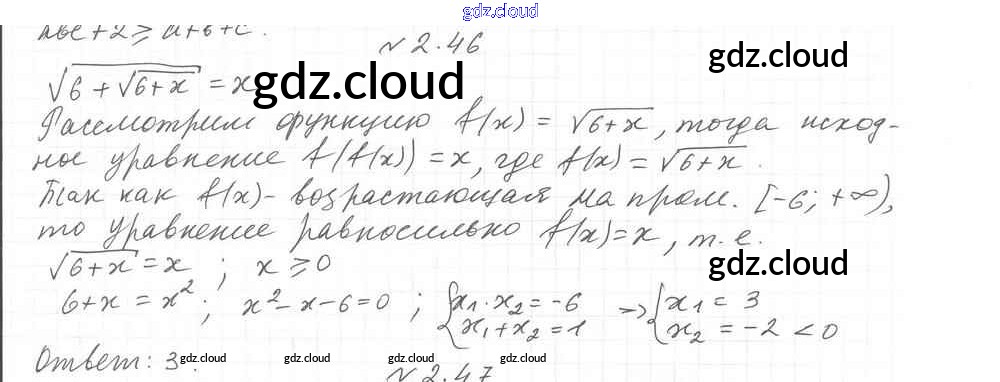 gdz.cloud
abc+2 ⩾ a+b+c.
№2.46
gdz.cloud
√(6+√(6+x)) = x
gdz.cloud
Рассмотрим функцию f(x) = √(6+x), тогда исход-
ное уравнение f(f(x)) = x, где f(x) = √(6+x).
Так как f(x) - возрастающая на пром. [-6; +∞),
то уравнение равносильно f(x)=x, т.е.
√(6+x) = x ; x ⩾ 0
gdz.cloud
6+x = x²; x²-x-6=0 ; {x₁·x₂=-6 x₁+x₂=1 → {x₁=3 x₂=-2<0
Ответ: 3.
gdz.cloud gdz.cloud gdz.cloud gdz.cloud gdz.cloud
№2.47